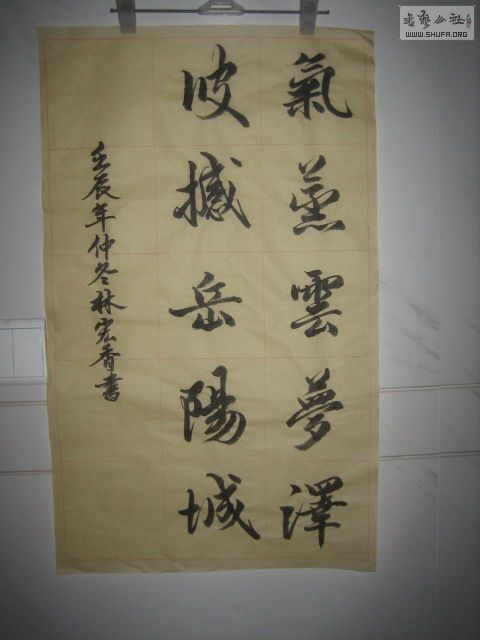 氣蒸雲夢澤
波撼岳陽城
壬辰年仲冬林宏香書
书艺公社
WWW.SHUFA.ORG